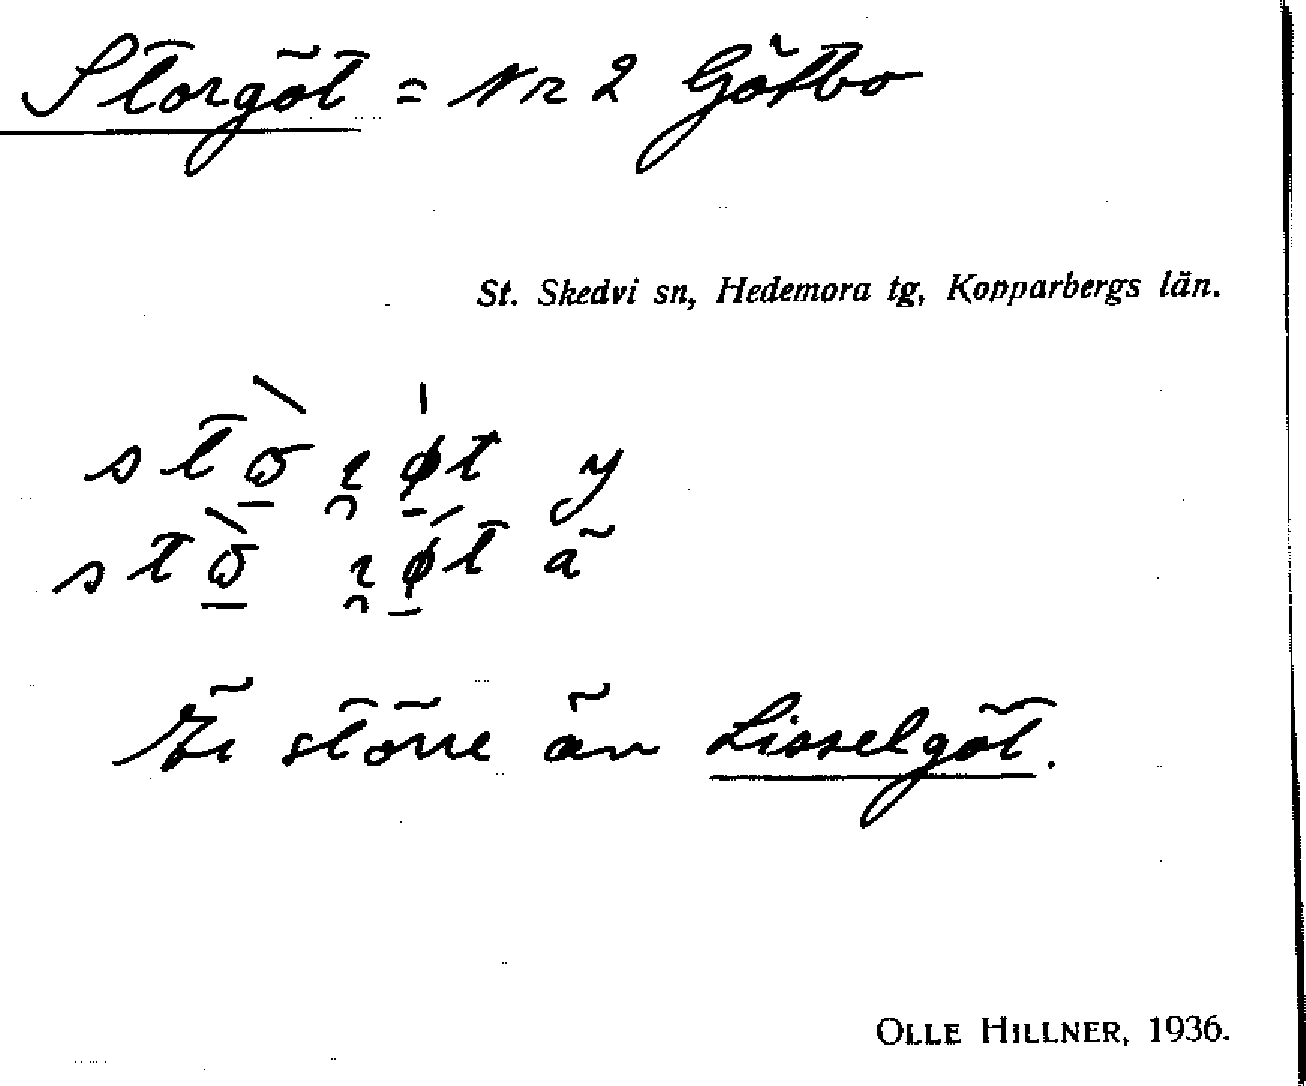 Storgöt = Nr 2 Götbo
St. Skedvi sn, Hedemora tg, Kopparbergs län.
y
ä
Är större än Lisselgöt.
OLLE HILLNER, 1936.